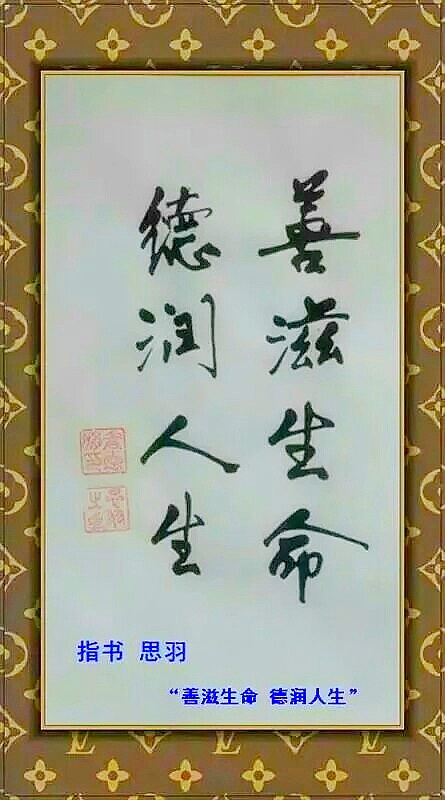 善滋生命
德润人生
指书 思羽
“善滋生命 德润人生”